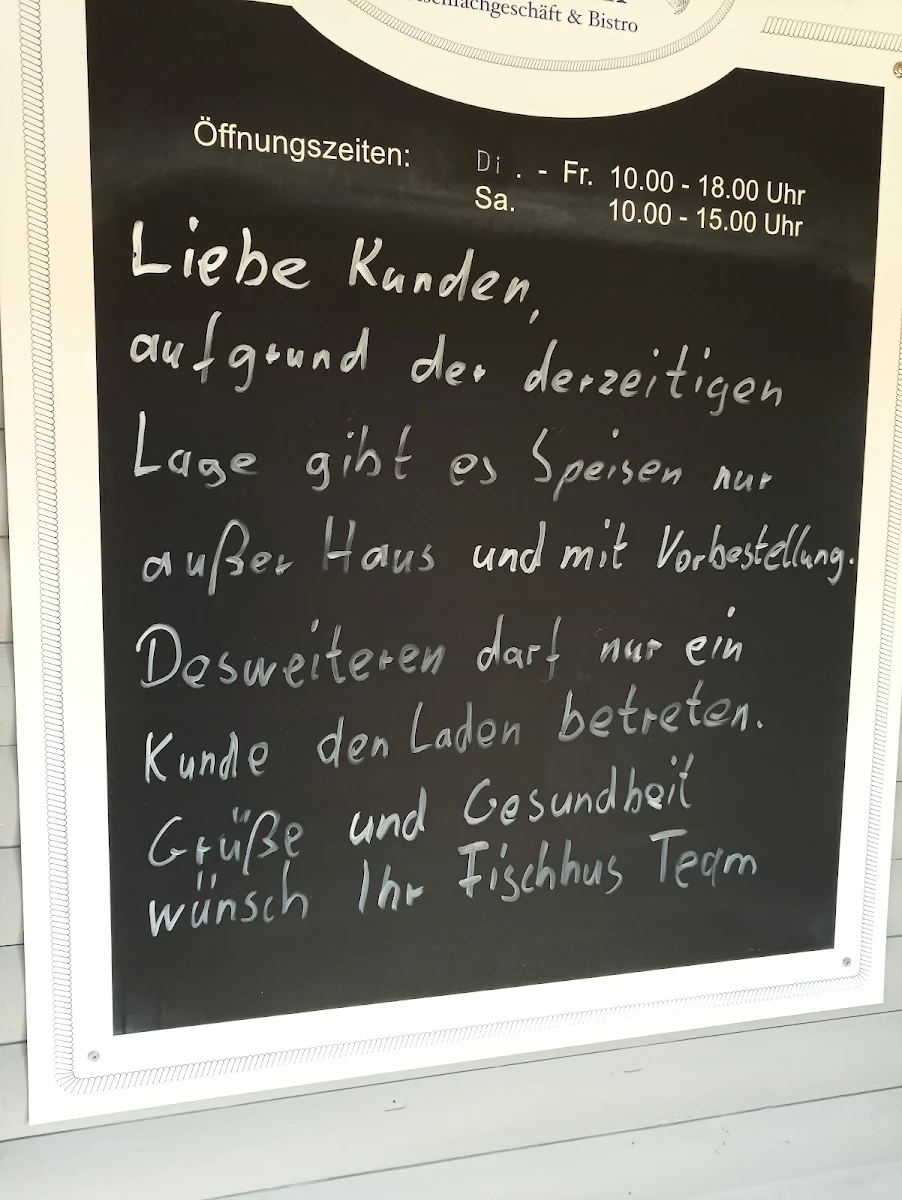 & Bistro
Öffnungszeiten: Di. - Fr. 10.00 - 18.00 Uhr
Sa. 10.00 - 15.00 Uhr
Liebe Kunden,
aufgrund der derzeitigen
Lage gibt es Speisen nur
außer Haus und mit Vorbestellung.
Desweiteren darf nur ein
Kunde den Laden betreten.
Grüße und Gesundheit
wünsch Ihr Fischhus Team